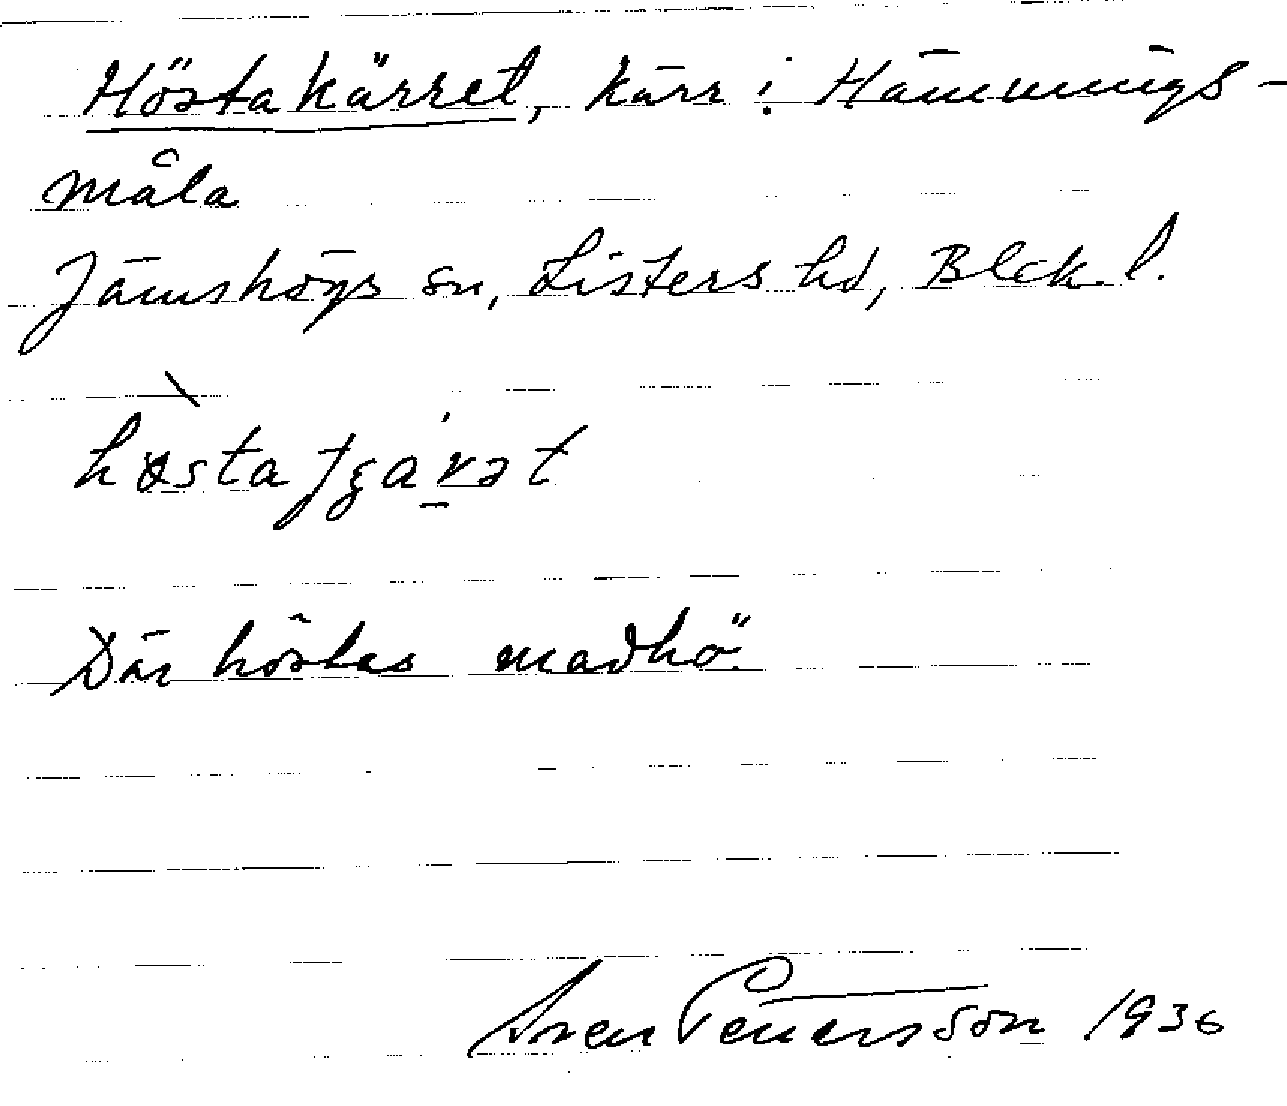 Höstakärret, kärr i Hämmings-
måla
Jämshögs sn, Listers hd, Blek. l.
Där höstas madhö.
Sven Pettersson 1936